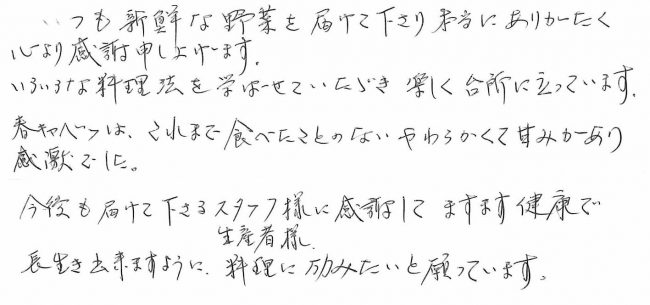 いつも新鮮な野菜を届けて下さり本当にありがたく
心より感謝申し上げます。
いろいろな料理法を学ばせていただき楽しく台所に立っています。
春キャベツは、これまで食べたことのないやわらかくて甘みがあり
感激でした。
今後も届けて下さるスタッフ様に感謝してますます健康で
生産者様
長生き出来ますように、料理に励みたいと願っています。